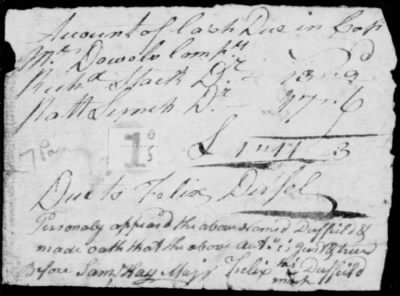 Account of Cash Due in Capt
Mr Dowols Compy
Richd Mack Dr 13 " 9
Patt Lynch Dr 27 " 6
£ 1 " 3
Due to Felix Duffel
Personaly appeard the above named Duffield &
made oath that the above Acct is Just & true
Before Saml Hay Majr Felix his Duffield
mark